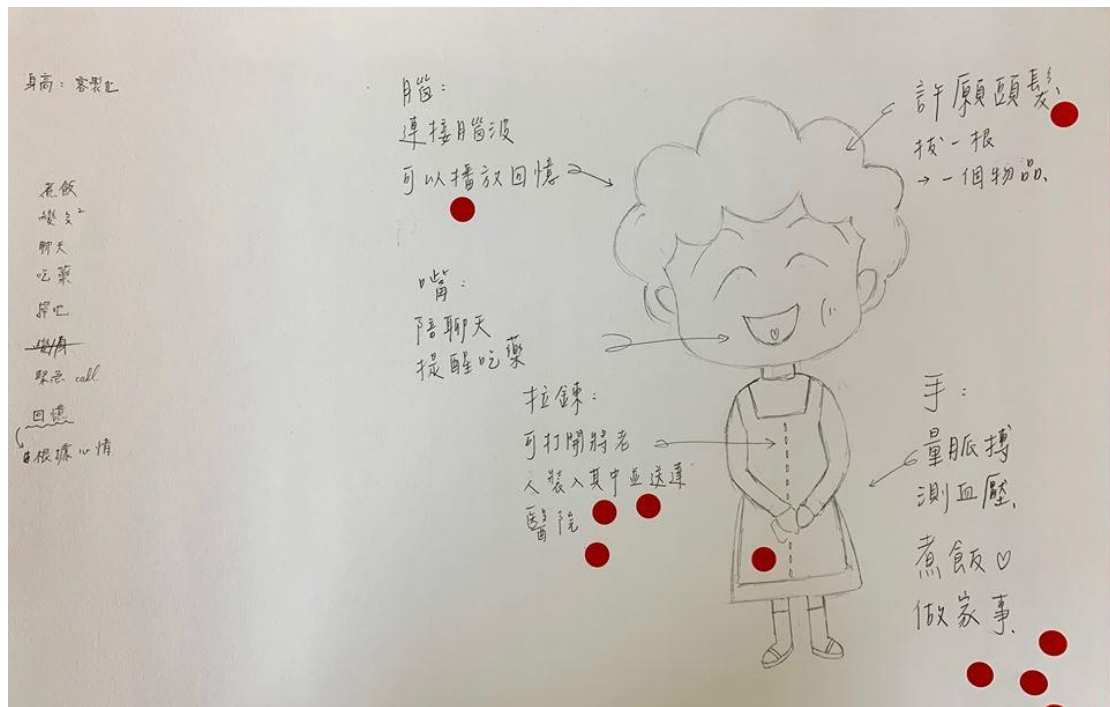 身高：客製化
煮飯
聊天
吃藥
緊急 call
回憶
根據心情
腦：
連接腦波
可以播放回憶
嘴：
陪聊天
提醒吃藥
拉鍊：
可打開將老
人裝入其中並送達
醫院
許願頭髮、
拔一根
→ 一個物品、
手：
量脈搏
測血壓、
煮飯♡
做家事、